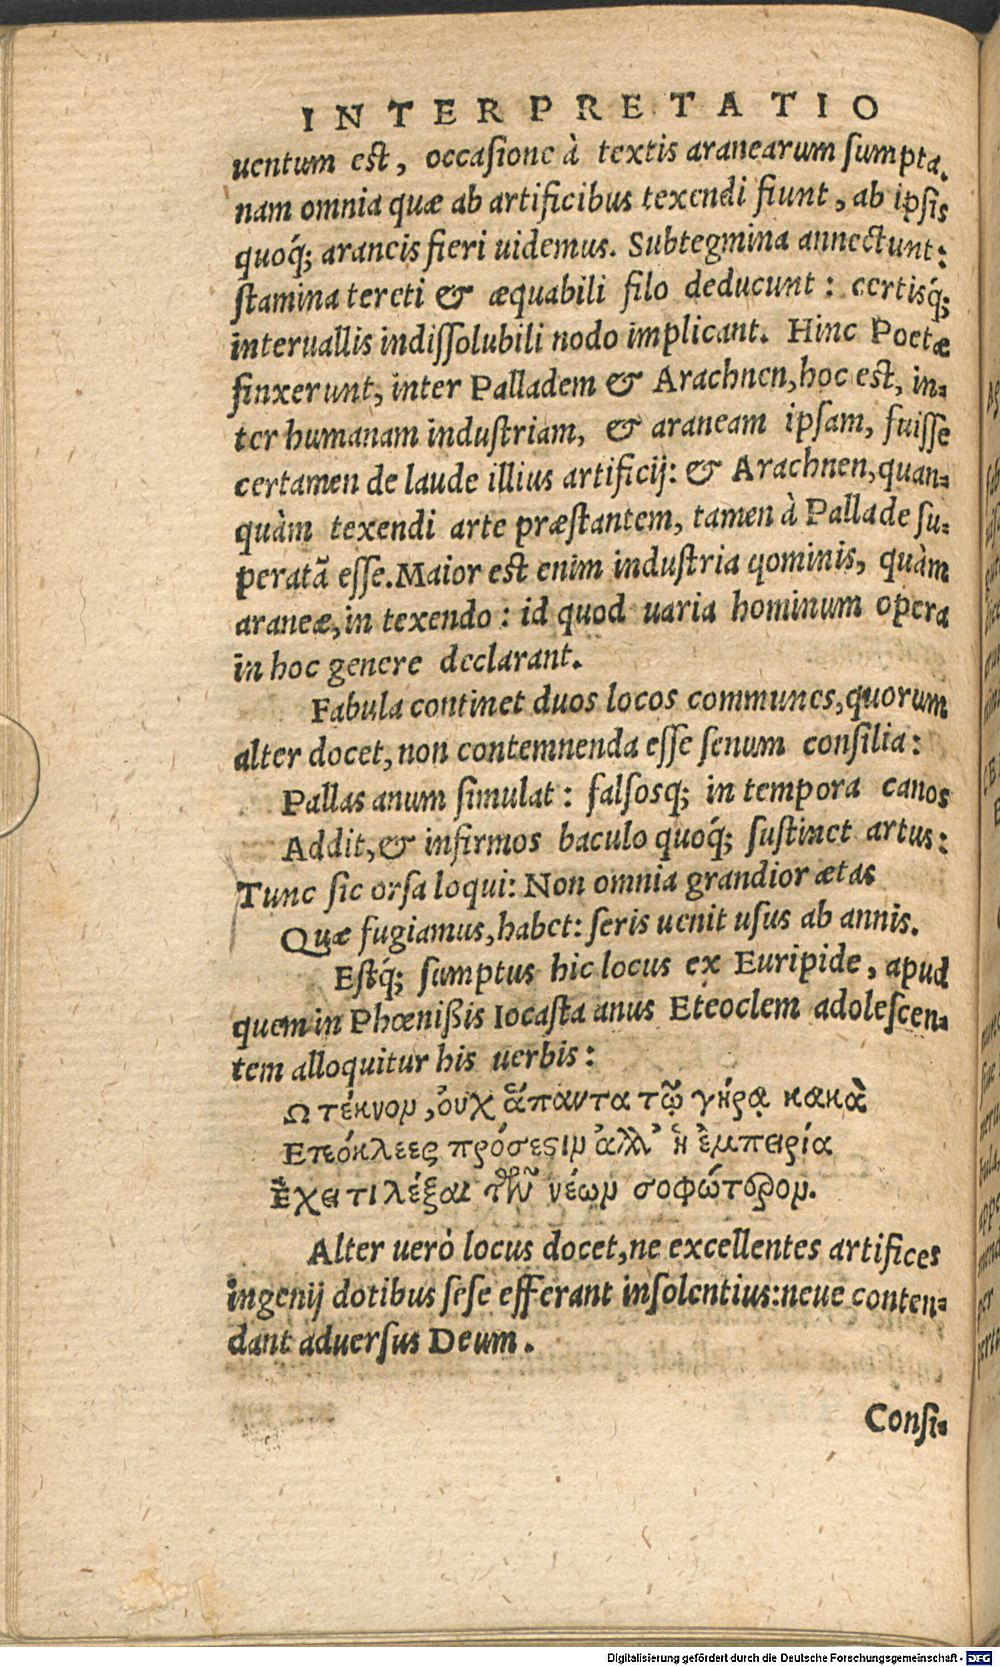 INTERPRETATIO
uentum est, occasione à textis aranearum sumpta.
nam omnia quæ ab artificibus texendi fiunt, ab ipsis
quoq́; araneis fieri uidemus. Subtegmina annectunt:
stamina tereti & æquabili filo deducunt: certisq́;
interuallis indissolubili nodo implicant. Hinc Poetæ
finxerunt, inter Palladem & Arachnen, hoc est, in-
ter humanam industriam, & araneam ipsam, fuisse
certamen de laude illius artificij: & Arachnen, quan-
quàm texendi arte præstantem, tamen à Pallade su-
peratã esse. Maior est enim industria qominis, quàm
araneæ, in texendo: id quod uaria hominum opera
in hoc genere declarant.
Fabula continet duos locos communes, quorum
alter docet, non contemnenda esse senum consilia:
Pallas anum simulat: falsosq; in tempora canos
Addit, & infirmos baculo quoq́; sustinet artus:
Tunc sic orsa loqui: Non omnia grandior ætas
Quæ fugiamus, habet: seris uenit usus ab annis.
Estq́; sumptus hic locus ex Euripide, apud
quem in Phœnißis Iocasta anus Eteoclem adolescen-
tem alloquitur his uerbis:
Ω τέκνον, ὀυχ ἅπαντα τῷ γήρᾳ κακὰ
Ετεόκλεες πρόσεϛιν ἀλλ' ἡ ἐμπειρία
Ἔχει τι λέξαι τῶν νέων σοφώτερον.
Alter uerò locus docet, ne excellentes artifices
ingenij dotibus sese efferant insolentius: neue conten-
dant aduersus Deum.
Consi-
Digitalisierung gefördert durch die Deutsche Forschungsgemeinschaft - DFG